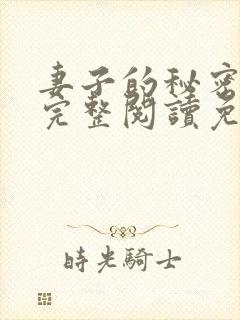 妻子的秘密
完整閱讀免
時光騎士